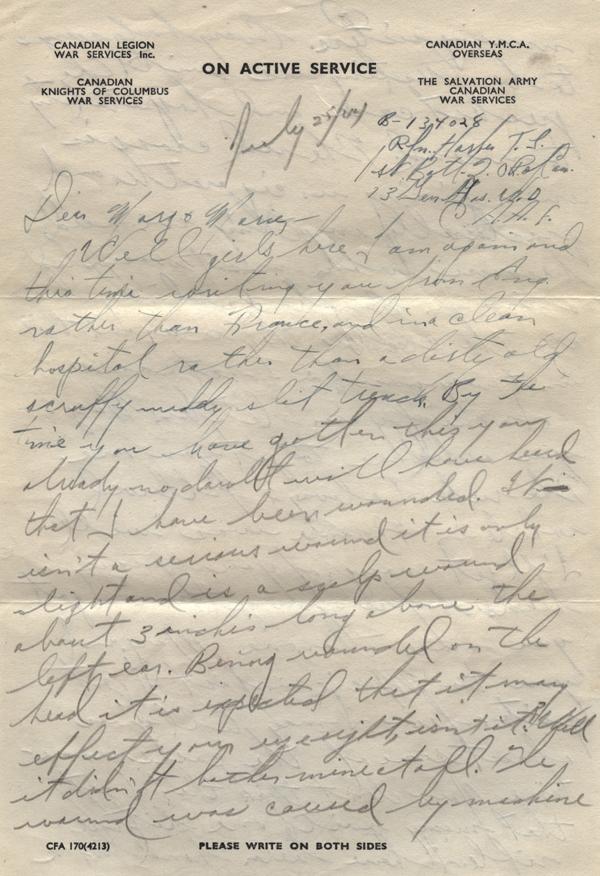 CANADIAN LEGION
WAR SERVICES Inc.
CANADIAN
KNIGHTS OF COLUMBUS
WAR SERVICES
ON ACTIVE SERVICE
CANADIAN Y.M.C.A.
OVERSEAS
THE SALVATION ARMY
CANADIAN
WAR SERVICES
July 25/44
B-134028
Rfn. T. S.
1st Batt. Q. O. R. of Can.
13 Gen Hos.
Dear Marg & Marie,-
Well girls here I am again and
this time writing you from Eng.
rather than France, and in a clean
hospital rather than a dirty old
scruffy muddy slit trench. By the
time you have gotten this you
already no doubt will have heard
that I have been wounded. It
isn't a serious wound it is only
slight and is a scalp wound
about 3 inches long above the
left ear. Being wounded on the
head it is expected that it may
effect your eyesight, isn't it? Well
it didn't bother mine at all. The
wound was caused by machine
CFA 170(4213)
PLEASE WRITE ON BOTH SIDES